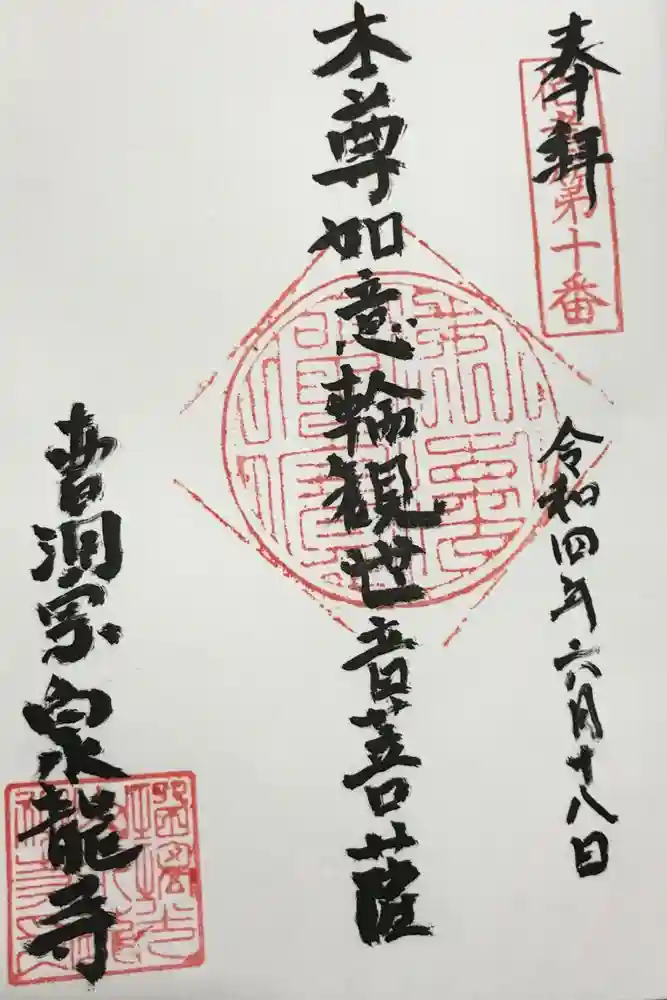 奉拝
第十番
令和四年六月十八日
本尊如意輪観世音菩薩
曹洞宗 泉龍寺